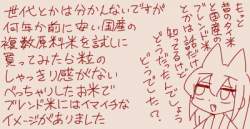 世代とかは分かんないですが
何年か前に安い国産の
複数原料米を試しに
買ってみたら粒の
しゃっきり感がない
べっちゃりしたお米で
ブレンド米にはイマイチな
イメージがありました
もっと
昔のタイ米
と国産の
ブレンド米
とかは
知ってるけど
どうだったんでしょう
どうでした？